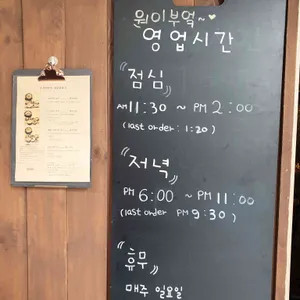 원이부엌~♥
영업시간
"점심"
AM 11:30 ~ PM 2:00
(last order : 1:20)
"저녁"
PM 6:00 ~ PM 11:00
(last order PM 9:30)
"휴무"
매주 일요일